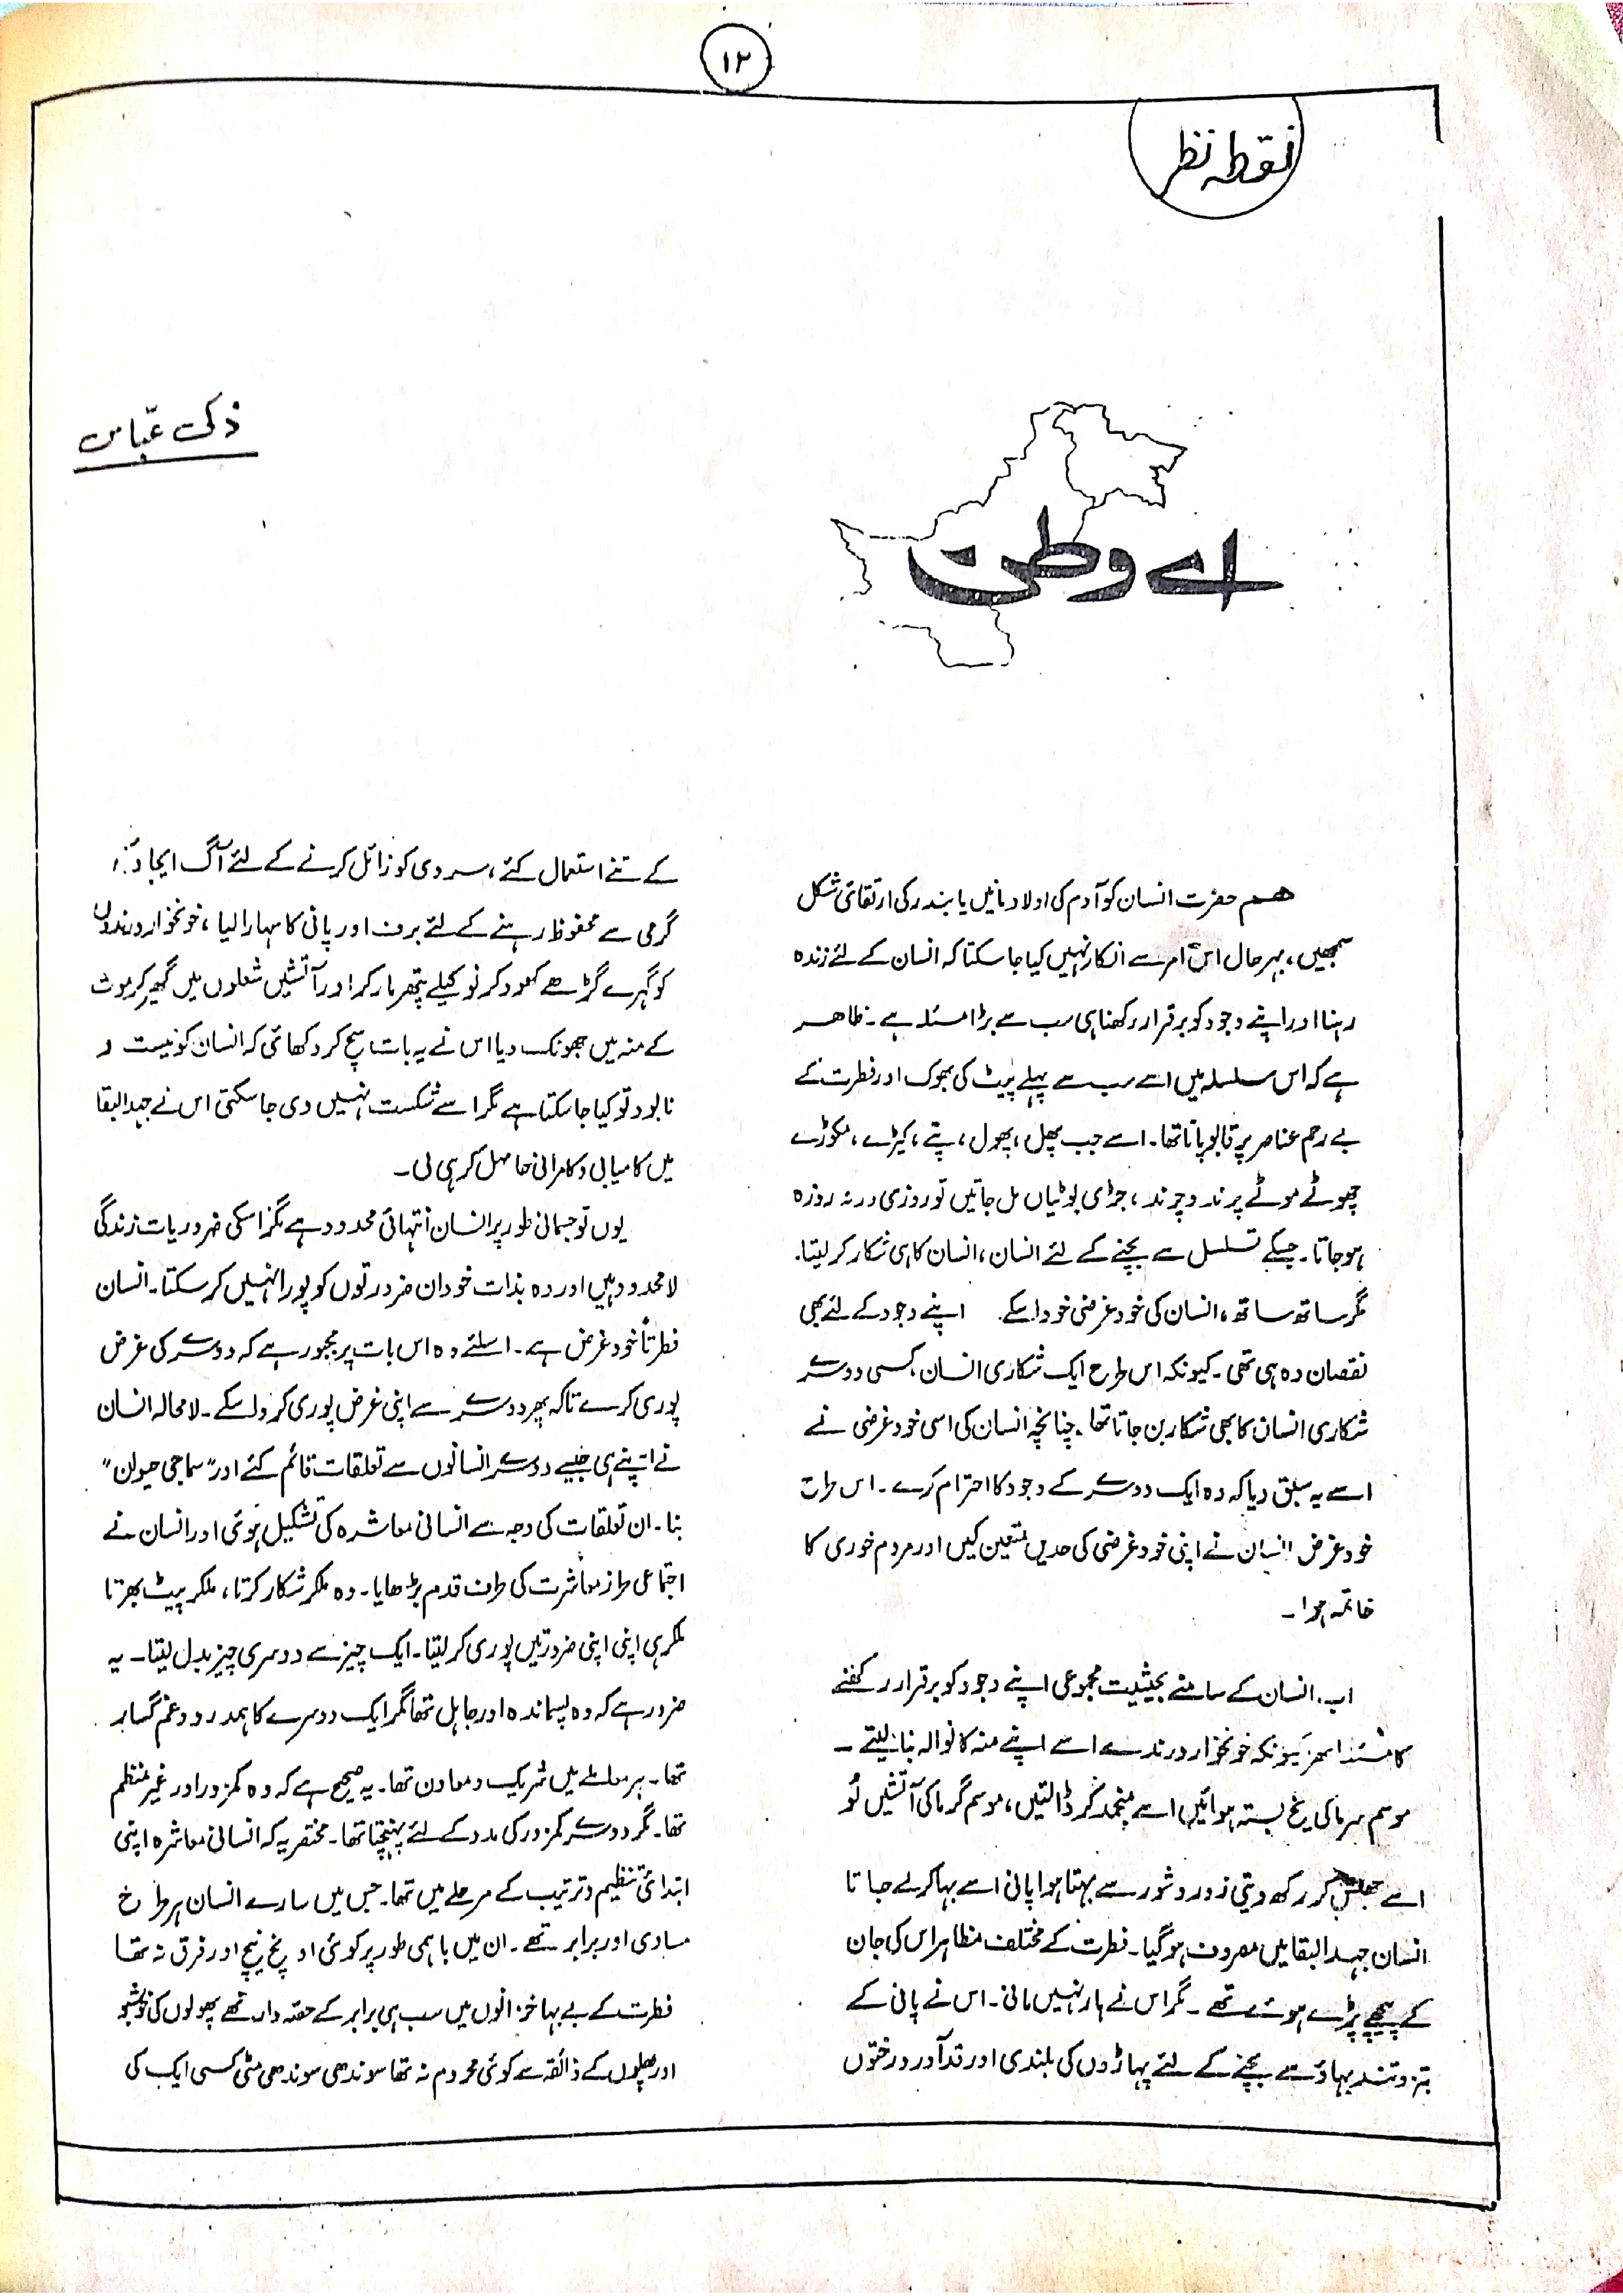 ۱۲
نقطہ نظر
اے وطن
ذکی عبّاس
ہم حضرت انسان کو آدم کی اولاد مانیں یا بندر کی ارتقائی شکل
سمجھیں، بہرحال اس امر سے انکار نہیں کیا جا سکتا کہ انسان کے لئے زندہ
رہنا اور اپنے وجود کو برقرار رکھنا ہی سب سے بڑا مسئلہ ہے ۔ ظاہر
ہے کہ اس سلسلہ میں اسے سب سے پہلے پیٹ کی بھوک اور فطرت کے
بے رحم عناصر پر قابو پانا تھا ۔ اسے جب پھل، پھول، پتے، کیڑے، مکوڑے
چھوٹے موٹے پرند و چرند، جڑی بوٹیاں مل جاتیں تو روزی ورنہ روزہ
ہو جاتا ۔ جسکے تسلسل سے بچنے کے لئے انسان، انسان کا ہی شکار کر لیتا.
مگر ساتھ ساتھ، انسان کی خود غرضی خود اسکے اپنے وجود کے لئے بھی
نقصان دہ ہی تھی ۔ کیونکہ اس طرح ایک شکاری انسان، کسی دوسرے
شکاری انسان کا بھی شکار بن جاتا تھا ۔ چنانچہ انسان کی اسی خود غرضی نے
اسے یہ سبق دیا کہ وہ ایک دوسرے کے وجود کا احترام کرے ۔ اس طرح
خود غرض انسان نے اپنی خود غرضی کی حدیں متعین کیں اور مردم خوری کا
خاتمہ ہوا ۔
اب انسان کے سامنے بحیثیت مجموعی اپنے وجود کو برقرار رکھنے
کا مسئلہ ابھرا کیونکہ خونخوار درندے اسے اپنے منہ کا نوالہ بنا لیتے ۔
موسم سرما کی یخ بستہ ہوائیں اسے منجمد کر ڈالتیں، موسم گرما کی آتشیں لُو
اسے جھلس کر رکھ دیتی زور و شور سے بہتا ہوا پانی اسے بہا کر لے جاتا
انسان جہد البقا میں مصروف ہو گیا ۔ فطرت کے مختلف مظاہر اس کی جان
کے پیچھے پڑے ہوئے تھے ۔ مگر اس نے ہار نہیں مانی ۔ اس نے پانی کے
تیز و تند بہاؤ سے بچنے کے لئے پہاڑوں کی بلندی اور قد آور درختوں
کے تنے استعمال کئے، سردی کو زائل کرنے کے لئے آگ ایجاد
گرمی سے محفوظ رہنے کے لئے برف اور پانی کا سہارا لیا، خونخوار درندوں
کو گہرے گڑھے کھود کر نوکیلے پتھر مار کر اور آتشیں شعلوں میں گھیر کر موت
کے منہ میں جھونک دیا اس نے یہ بات سچ کر دکھائی کہ انسان کو نیست و
نابود تو کیا جا سکتا ہے مگر اسے شکست نہیں دی جا سکتی اس نے جہد البقا
میں کامیابی و کامرانی حاصل کر ہی لی ۔
یوں تو جسمانی طور پر انسان انتہائی محدود ہے مگر اسکی ضروریات زندگی
لامحدود ہیں اور وہ بذات خود ان ضرورتوں کو پورا نہیں کر سکتا ۔ انسان
فطرتاً خود غرض ہے ۔ اسلئے وہ اس بات پر مجبور ہے کہ دوسرے کی غرض
پوری کرے تاکہ پھر دوسرے سے اپنی غرض پوری کروا سکے ۔ لامحالہ انسان
نے اپنے ہی جیسے دوسرے انسانوں سے تعلقات قائم کئے اور "سماجی حیوان"
بنا ۔ ان تعلقات کی وجہ سے انسانی معاشرہ کی تشکیل ہوئی اور انسان نے
اجتماعی طرز معاشرت کی طرف قدم بڑھایا ۔ وہ ملکر شکار کرتا، ملکر پیٹ بھرتا
ملکر ہی اپنی اپنی ضرورتیں پوری کر لیتا ۔ ایک چیز سے دوسری چیز بدل لیتا ۔ یہ
ضرور ہے کہ وہ پسماندہ اور جاہل تھا مگر ایک دوسرے کا ہمدرد و غم گسار
تھا ۔ ہر معاملے میں شریک و معاون تھا ۔ یہ صحیح ہے کہ وہ کمزور اور غیر منظم
تھا ۔ مگر دوسرے کمزور کی مدد کے لئے پہنچتا تھا ۔ مختصر یہ کہ انسانی معاشرہ اپنی
ابتدائی تنظیم و ترتیب کے مرحلے میں تھا ۔ جس میں سارے انسان ہر طرح
مساوی اور برابر تھے ۔ ان میں باہمی طور پر کوئی اونچ نیچ اور فرق نہ تھا
فطرت کے بے بہا خزانوں میں سب ہی برابر کے حصّہ دار تھے پھولوں کی خوشبو
اور پھلوں کے ذائقہ سے کوئی محروم نہ تھا سوندھی سوندھی مٹی کسی ایک کی